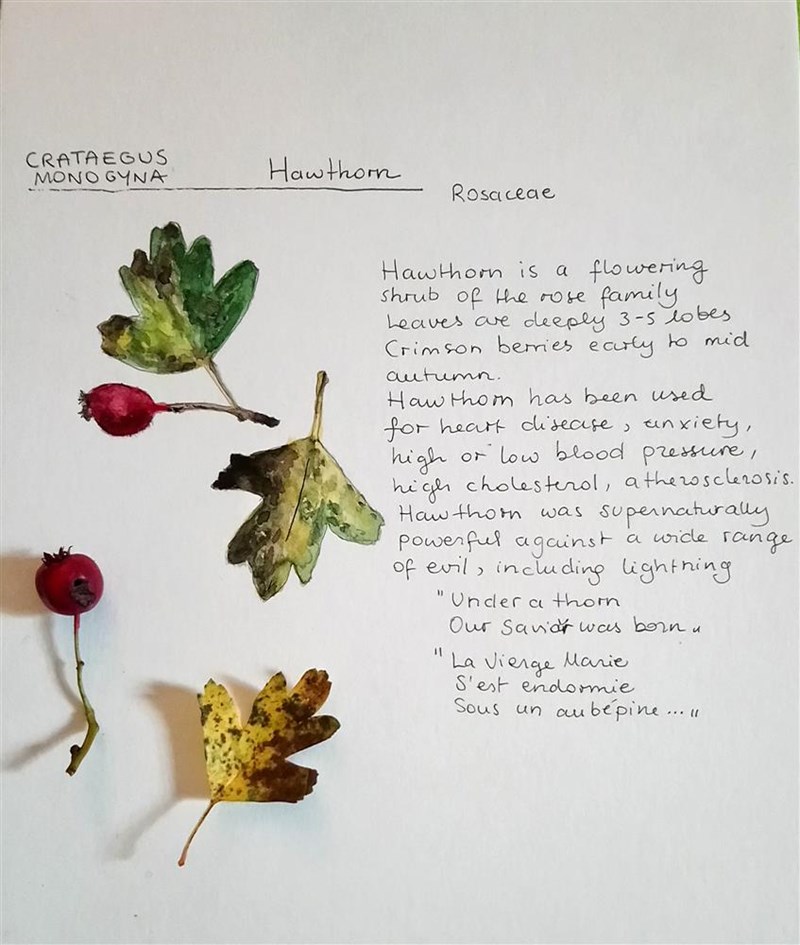 CRATAEGUS
MONOGYNA
Hawthorn
Rosaceae
Hawthorn is a flowering
shrub of the rose family
Leaves are deeply 3-5 lobes
Crimson berries early to mid
autumn.
Hawthorn has been used
for heart disease, anxiety,
high or low blood pressure,
high cholesterol, atherosclerosis.
Hawthorn was supernaturally
powerful against a wide range
of evil, including lightning
"Under a thorn
Our Savior was born"
"La Vierge Marie
S'est endormie
Sous un aubépine..."